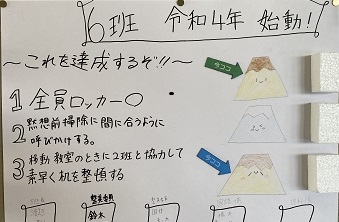 6班 令和4年 始動!
～これを達成するぞ!!～
1 全員ロッカー〇
2 黙想前掃除に間に合うように
呼びかけする。
3 移動教室のときに2班と協力して
素早く机を整頓する
今ココ
今ココ
整美委員
鈴木